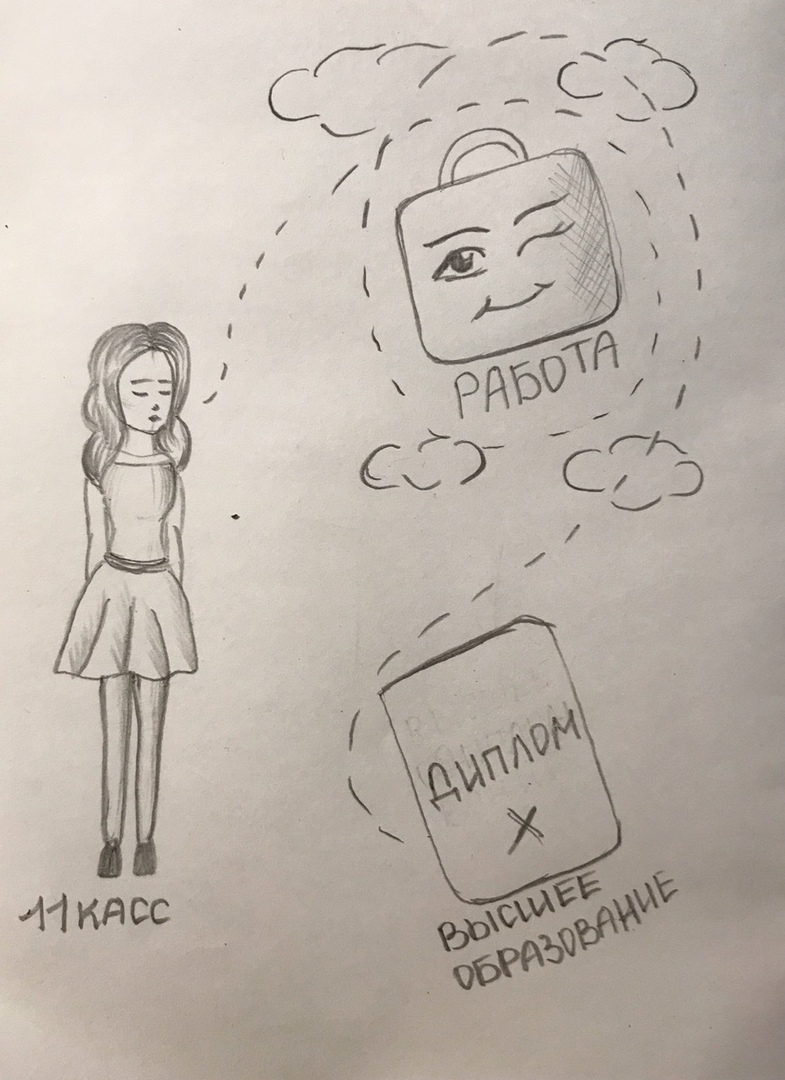 РАБОТА
ДИПЛОМ
X
11 КАСС
ВЫСШЕЕ
ОБРАЗОВАНИЕ